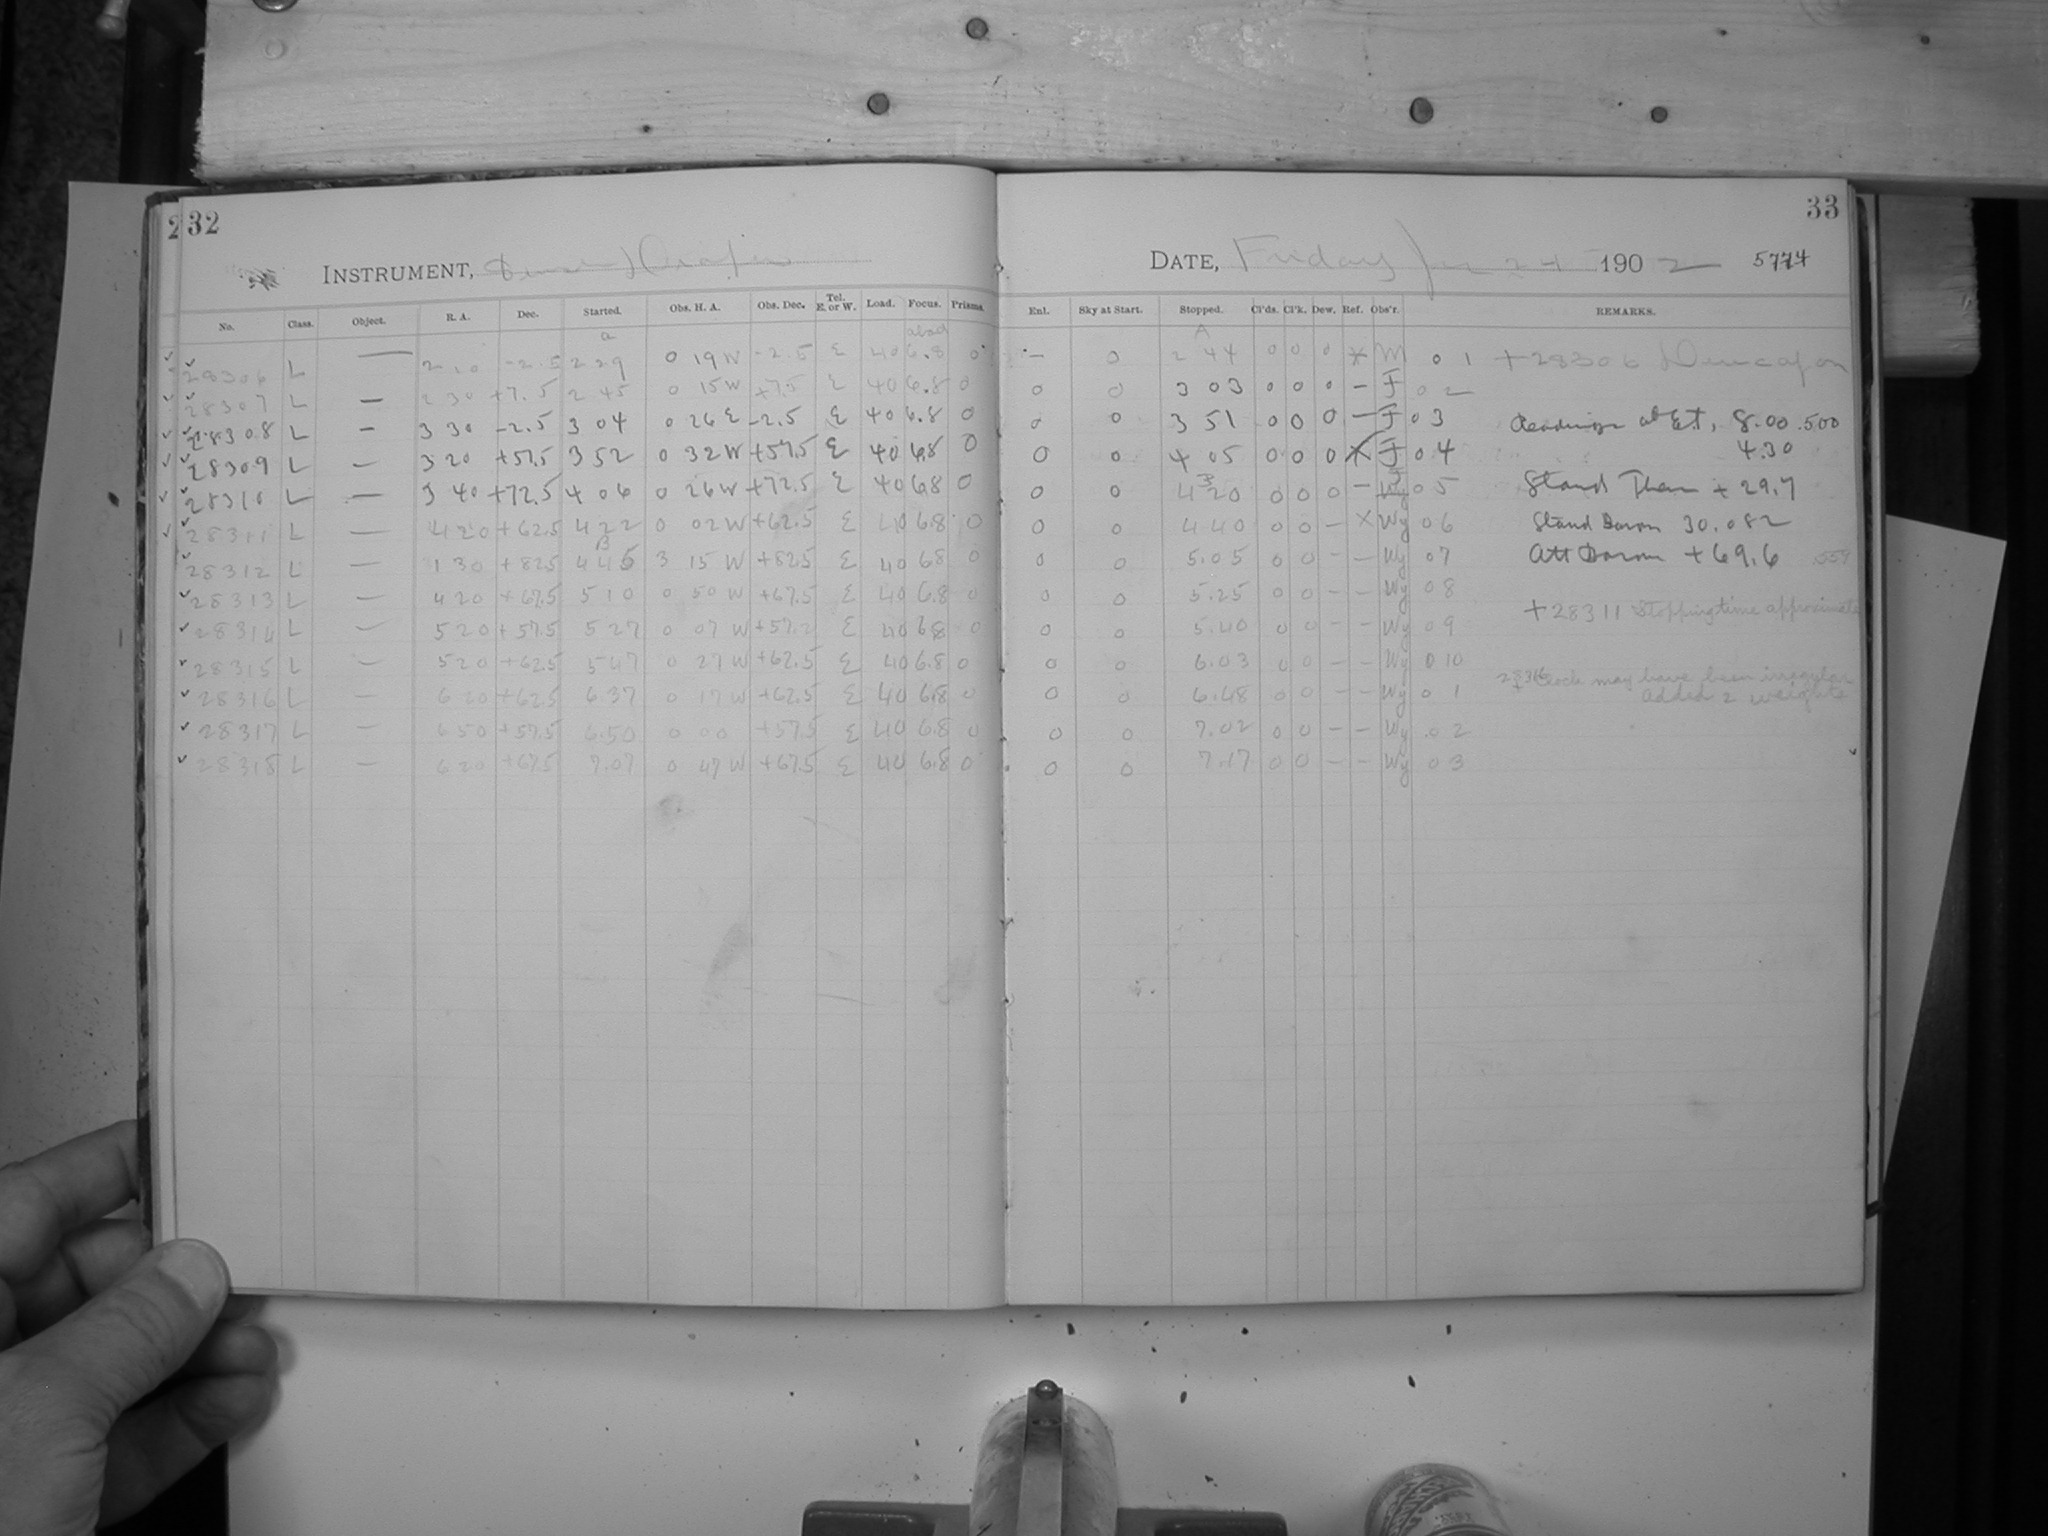 2 32
33
INSTRUMENT, Draper
DATE, Friday Jan 24 1902 5774
No. Class. Object. R. A. Dec. Started. Obs. H. A. Obs. Dec. Tel. E. or W. Load. Focus. Prisms. Enl. Sky at Start. Stopped. Cl'ds. Cl'k. Dew. Ref. Obs'r. REMARKS.
28306 L — 2 10 -2.5 2 29 0 19 W -2.5 E 40 6.8 0 — 0 2 44 0 0 0 * M 0 1 + 28306
28307 L — 2 30 +7.5 2 45 0 15 W +7.5 E 40 6.8 0 0 0 3 03 0 0 0 – F 0 2
28308 L — 3 30 -2.5 3 04 0 26 E -2.5 E 40 6.8 0 0 0 3 51 0 0 0 – F 0 3 Readings at E.T, 8.00 .500
28309 L — 3 20 +57.5 3 52 0 32 W +57.5 E 40 6.8 0 0 0 4 05 0 0 0 X F 0 4 4.30
28310 L — 3 40 +72.5 4 06 0 26 W +72.5 E 40 6.8 0 0 0 4 20 0 0 0 – F 0 5 Stand Ther + 29.7
28311 L — 4 20 +62.5 4 22 0 02 W +62.5 E 40 6.8 0 0 0 4 40 0 0 – X Wy 0 6 Stand Barom 30.082
28312 L — 1 30 +82.5 4 45 3 15 W +82.5 E 40 6.8 0 0 0 5.05 0 0 – – Wy 0 7 Att Barom + 69.6 .559
28313 L — 4 20 +67.5 5 10 0 50 W +67.5 E 40 6.8 0 0 0 5.25 0 0 – – Wy 0 8
+ 28311 Stopping time approximate
28314 L — 5 20 +57.5 5 27 0 07 W +57.2 E 40 6.8 0 0 0 5.40 0 0 – – Wy 0 9
28315 L — 5 20 +62.5 5 47 0 27 W +62.5 E 40 6.8 0 0 0 6.03 0 0 – – Wy 0 10
28316 Clock may have been irregular
28316 L — 6 20 +62.5 6.37 0 17 W +62.5 E 40 6.8 0 0 0 6.48 0 0 – – Wy 0 1 Added 2 weights
28317 L — 6 50 +57.5 6.50 0 00 +57.5 E 40 6.8 0 0 0 7.02 0 0 – – Wy 0 2
28318 L — 6 20 +67.5 7.07 0 47 W +67.5 E 40 6.8 0 0 0 7.17 0 0 – – Wy 0 3